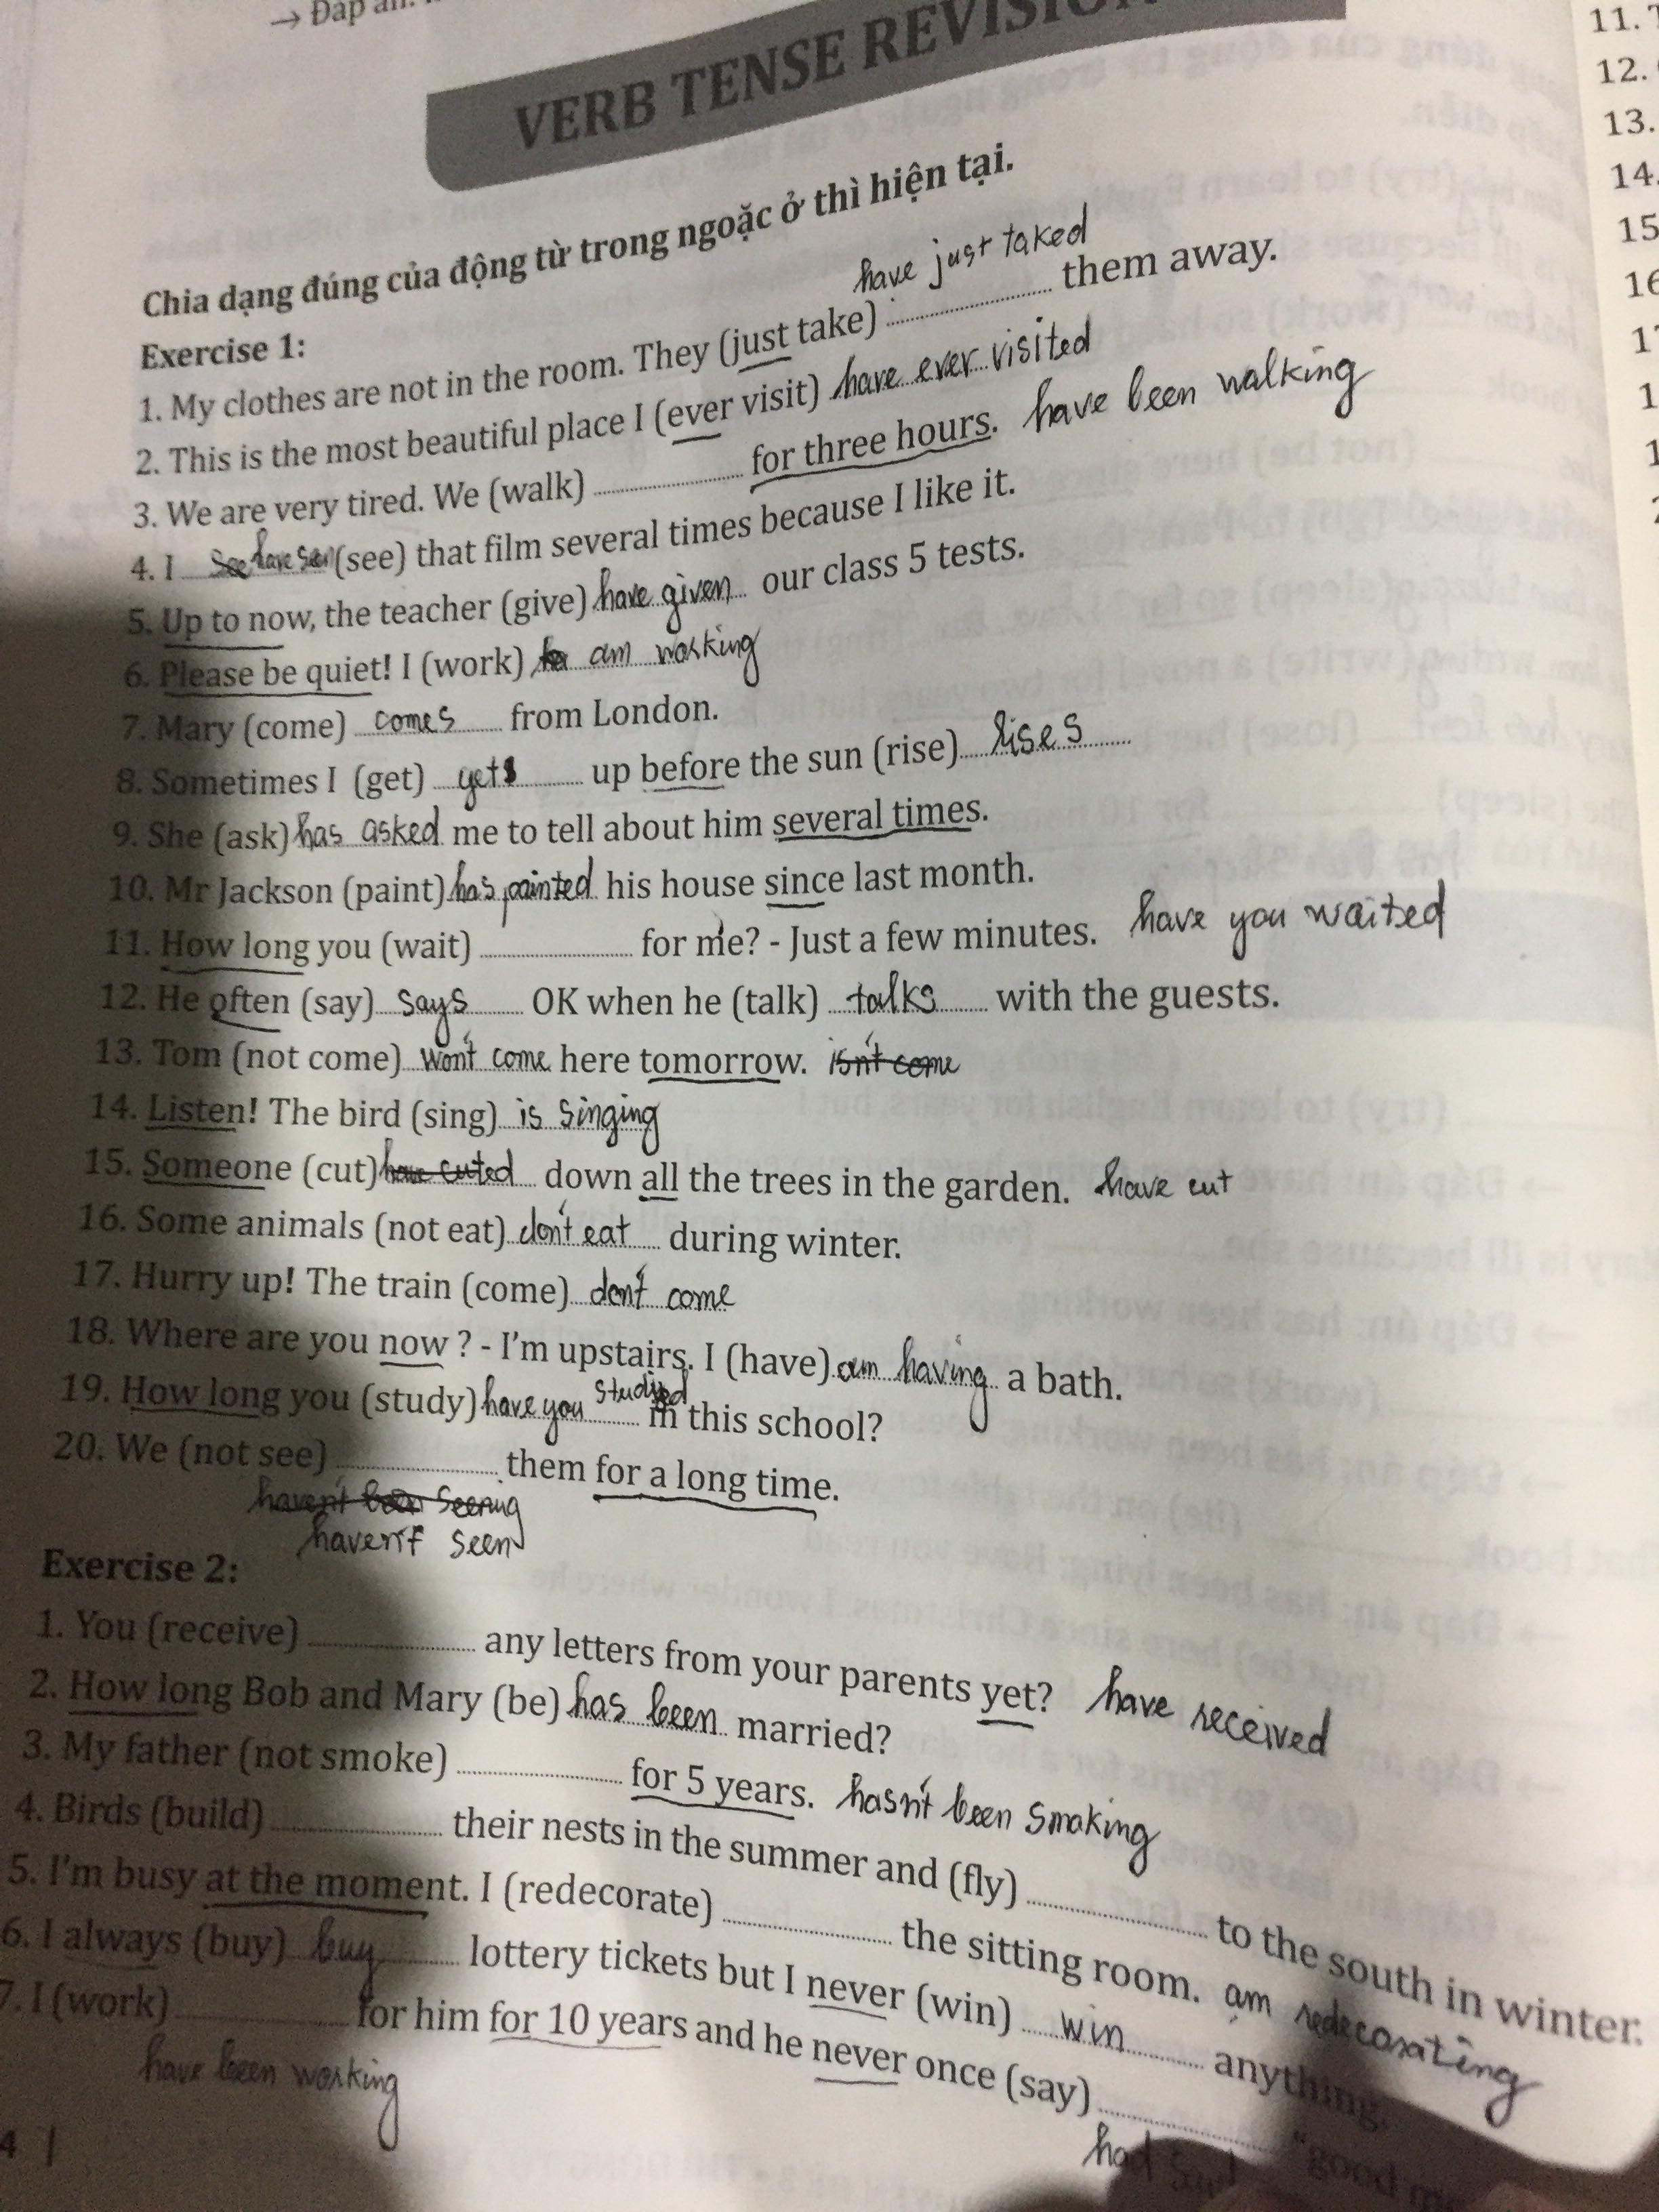 → Đáp án:
VERB TENSE REVISION
Chia dạng đúng của động từ trong ngoặc ở thì hiện tại.
Exercise 1:
have just taked
1. My clothes are not in the room. They (just take) .................... them away.
2. This is the most beautiful place I (ever visit) have ever visited
3. We are very tired. We (walk) .................... for three hours. have been walking
4. I see have seen (see) that film several times because I like it.
5. Up to now, the teacher (give) have given our class 5 tests.
6. Please be quiet! I (work) am working
7. Mary (come) comes from London.
8. Sometimes I (get) gets up before the sun (rise) rises
9. She (ask) has asked me to tell about him several times.
10. Mr Jackson (paint) has painted his house since last month.
11. How long you (wait) .................... for me? - Just a few minutes. have you waited
12. He often (say) says OK when he (talk) talks with the guests.
13. Tom (not come) won't come here tomorrow. isn't come
14. Listen! The bird (sing) is singing
15. Someone (cut) have cuted down all the trees in the garden. have cut
16. Some animals (not eat) don't eat during winter.
17. Hurry up! The train (come) don't come
18. Where are you now ? - I'm upstairs. I (have) am having a bath.
19. How long you (study) have you studied in this school?
20. We (not see) .................... them for a long time.
haven't been seening
haven't seen
Exercise 2:
1. You (receive) .................... any letters from your parents yet? have received
2. How long Bob and Mary (be) has been married?
3. My father (not smoke) .................... for 5 years. hasn't been smoking
4. Birds (build) .................... their nests in the summer and (fly) .................... to the south in winter.
5. I'm busy at the moment. I (redecorate) .................... the sitting room. am redecorating
6. I always (buy) buy lottery tickets but I never (win) win anything.
7. I (work) .................... for him for 10 years and he never once (say) .................... "good
have been working
had
4 |
11.
12.
13.
14.
15
16